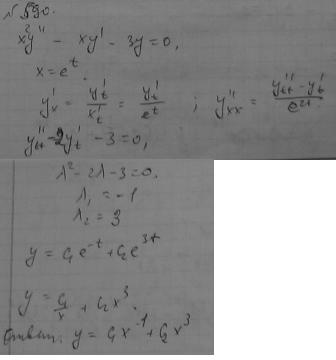 № 590.
x²y'' - xy' - 3y = 0,
x = e^t.
y'_x = y'_t / x'_t = y'_t / e^t ; y''_xx = (y''_tt - y'_t) / e^2t
y''_tt - 2y'_t - 3 = 0,
λ² - 2λ - 3 = 0.
λ₁ = -1
λ₂ = 3
y = C₁e^-t + C₂e^3t
y = C₁/x + C₂x³.
Ответ: y = C₁x⁻¹ + C₂x³